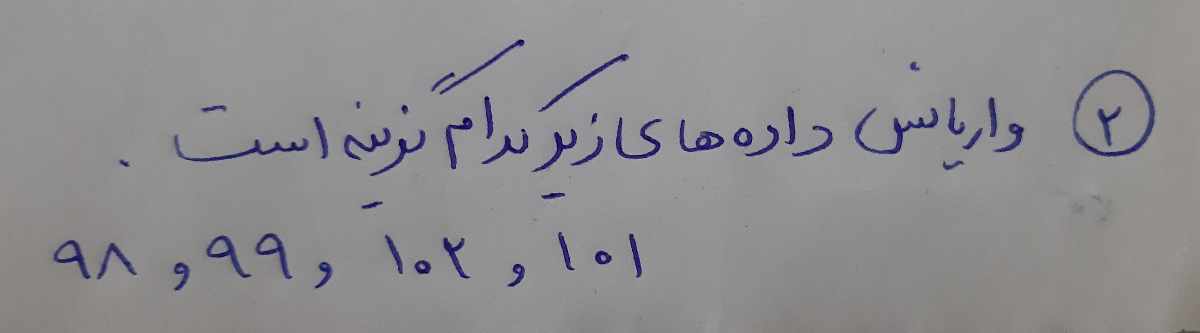 ۲ واریانس داده های زیر کدام گزینه است .
۱۰۱ و ۱۰۲ و ۹۹ و ۹۸